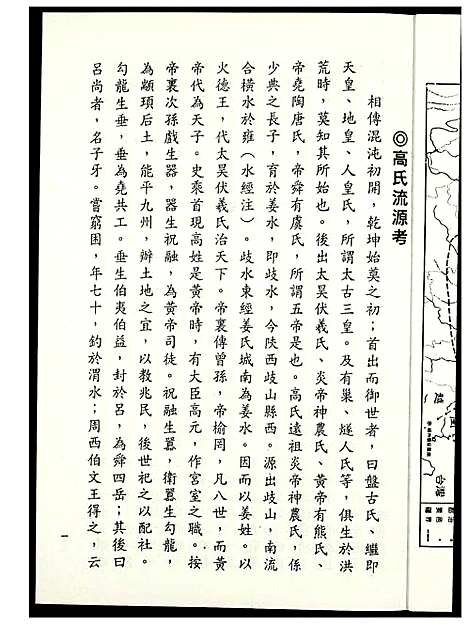 ◎高氏流源考
相傳混沌初開，乾坤始奠之初；首出而御世者，曰盤古氏、繼即
天皇、地皇、人皇氏，所謂太古三皇。及有巢、燧人氏等，俱生於洪
荒時，莫知其所始也。後出太昊伏羲氏、炎帝神農氏、黃帝有熊氏、
帝堯陶唐氏，帝舜有虞氏，所謂五帝是也。高氏遠祖炎帝神農氏，係
少典之長子，育於姜水，即歧水，今陝西歧山縣西。源出歧山，南流
合橫水於雍（水經注）。歧水東經姜氏城南為姜水。因而以姜姓。以
火德王，代太昊伏羲氏治天下。帝裏傳曾孫，帝榆罔，凡八世，而黃
帝代為天子。史乘首現高姓是黃帝時，有大臣高元，作宮室之職。按
帝裏次孫戲生器，器生祝融，為黃帝司徒。祝融生囂，衛囂生勾龍，
為顓頊后土，能平九州，辦土地之宜，以教兆民，後世祀之以配社。
勾龍生垂，垂為堯共工。垂生伯夷伯益，封於呂，為舜四岳；其後曰
呂尚者，名子牙。嘗窮困，年七十，釣於渭水；周西伯文王得之，云
一
台灣